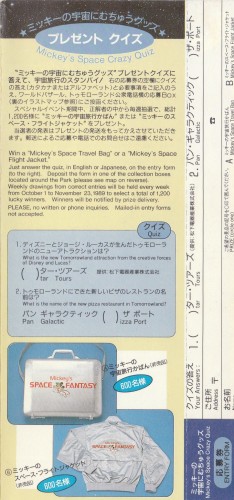 ミッキーの宇宙にむちゅうグッズ
プレゼント クイズ
Mickey's Space Crazy Quiz
"ミッキーの宇宙にむちゅうグッズ"プレゼントクイズに
答えて、宇宙旅行のスタンバイ! 右の応募券の空欄にクイズ
の答え(カタカナまたはアルファベット)と必要事項をご記入のう
え、ワールドバザール、トゥモローランド公衆電話他の応募Box
(裏のイラストマップ参照)にご投函ください。
スペシャルイベント期間中、正解者の中から毎週抽選で、総計
1,200名様に"ミッキーの宇宙旅行かばん"または"ミッキーのス
ペース・フライトジャケット"をプレゼント。
当選者の発表はプレゼントの発送をもってかえさせていただき
ます。郵送によるご応募や電話でのお問合せはご遠慮ください。
Win a "Mickey's Space Travel Bag" or a "Mickey's Space
Flight Jacket."
Just answer the quiz, in English or Japanese, on the entry form
(to the right). Deposit the form in one of the collection boxes
located around the Park (please see map on reverse).
Weekly drawings from correct entries will be held every week
from October 1 to November 23, 1989 to select a total of 1,200
lucky winners. Winners will be notified by prize delivery.
PLEASE, no written or phone inquiries. Mailed-in entry forms
not accepted.
クイズ
Quiz
1. ディズニーとジョージ・ルーカスが生んだトゥモロー
ランドのニューアトラクションは?
What is the new Tomorrowland attraction from the creative forces
of Disney and Lucas?
( )ター・ツアーズ
( )tar Tours
2. トゥモローランドにできた新しいピザのレストランの
名前は?
What is the name of the new pizza restaurant in Tomorrowland?
パン ギャラクティック ( )ザ ポート
Pan Galactic ( )izza Port
Mickey's
SPACE FANTASY
Ⓐミッキーの
宇宙旅行かばん(非売品)
800名様
SPACE FANTASY
Ⓑミッキーの
スペース・フライトジャケット(非売品)
400名様
ミッキーの
宇宙にむちゅうグッズ
Mickey's Space Crazy Quiz
応募券
ENTRY FORM
クイズの答え
Your Answers:
1. ( )ター・ツアーズ
( )tar Tours
(提供:松下電器産業株式会社)
2. パン・ギャラクティック( )ザ・ポート
Pan Galactic ( )izza Port
ご住所 〒
Address
☎
お名前
A
B